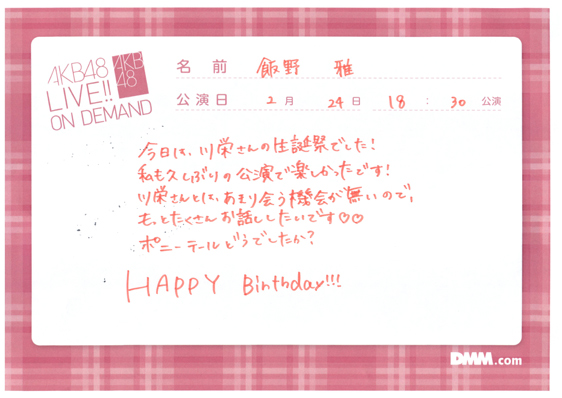 AKB48
LIVE!!
ON DEMAND
AKB
48
名前 飯野 雅
公演日 2月 24日 18:30 公演
今日は、川栄さんの生誕祭でした!
私も久しぶりの公演で楽しかったです!
川栄さんとは、あまり会う機会が無いので、
もっとたくさんお話ししたいです♡♡
ポニーテールどうでしたか?
HAPPY Birthday!!!
DMM.com